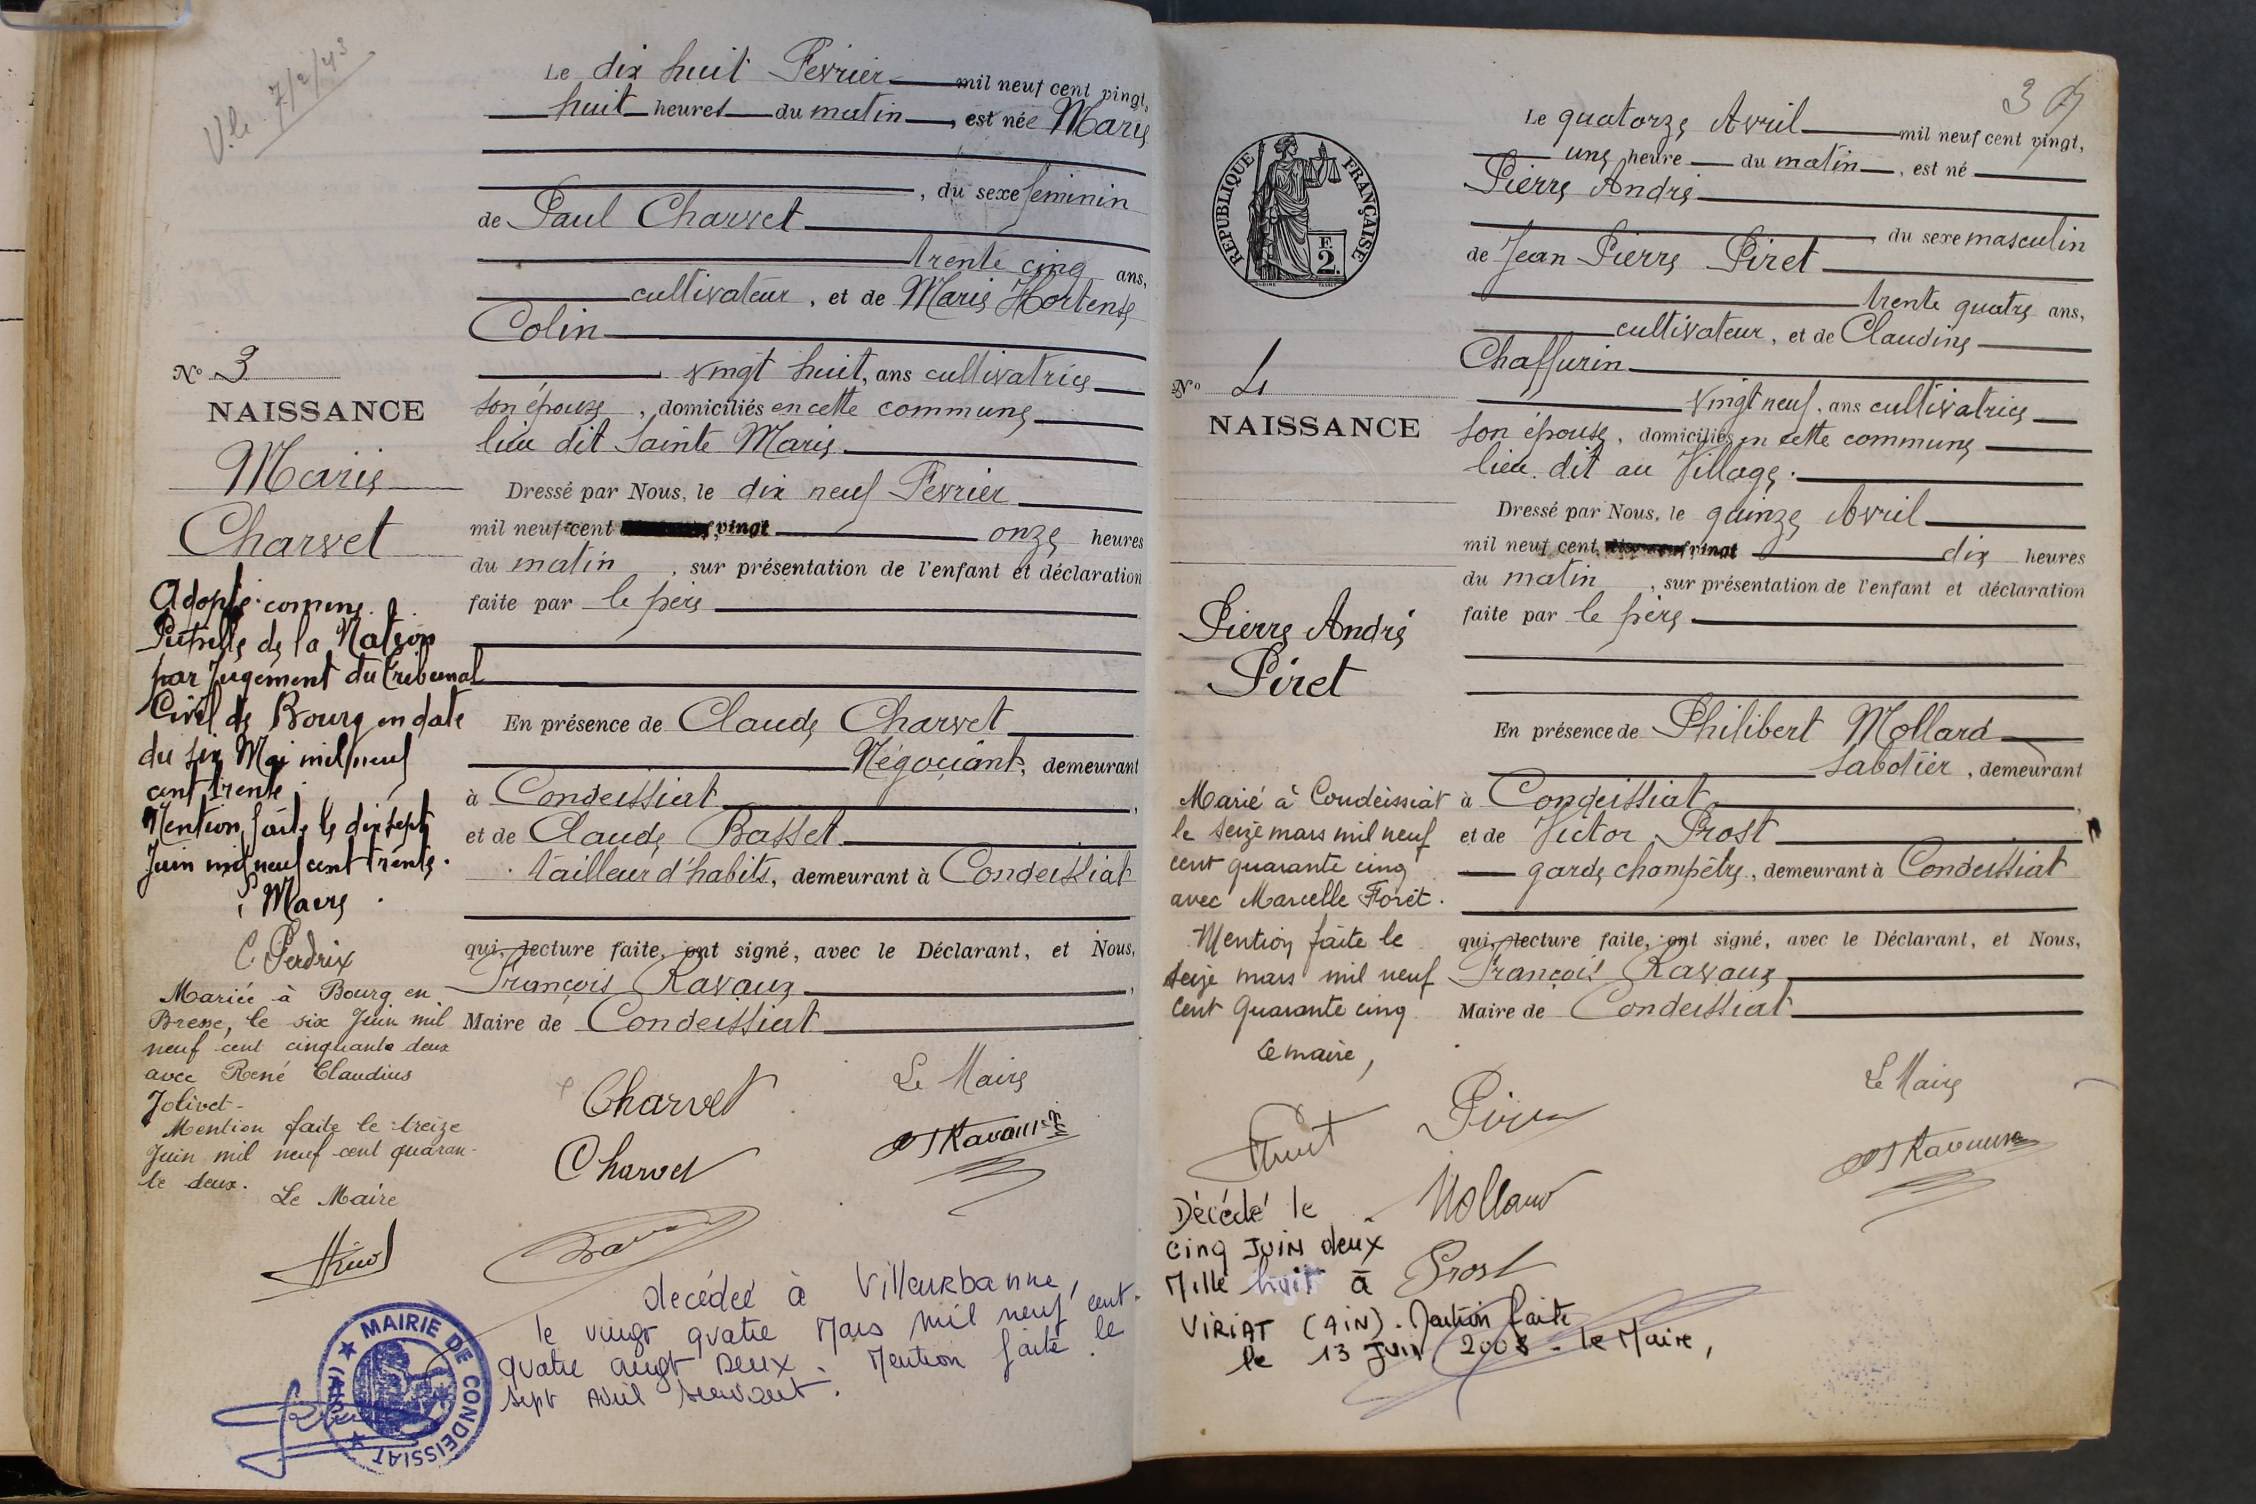 V. le 7/2/43
Le dix huit Fevrier mil neuf cent vingt,
huit heures du matin, est née Marie
, du sexe feminin
de Paul Charvet
trente cinq ans,
cultivateur, et de Marie Hortense
Colin
vingt huit, ans cultivatrice
son épouse, domiciliés en cette commune
lieu dit Sainte Marie
Dressé par Nous, le dix neuf Fevrier
mil neuf cent vingt onze heures
du matin, sur présentation de l'enfant et déclaration
faite par le père
En présence de Claude Charvet
Négociant, demeurant
à Condeissiat,
et de Claude Basset
tailleur d'habits, demeurant à Condeissiat
qui, lecture faite, ont signé, avec le Déclarant, et Nous,
François Ravaux,
Maire de Condeissiat
Le Maire
Charvet
Charvet
N° 3
NAISSANCE
Marie
Charvet
Adoptée comme
Pupille de la Nation
par jugement du tribunal
Civil de Bourg en date
du six Mai mil neuf
cent trente.
Mention faite le dix sept
Juin mil neuf cent trente.
Maire
C. Perdrix
Mariée à Bourg en
Bresse, le six Juin mil
neuf cent cinquante deux
avec René Claudius
Jolivet-
Mention faite le treize
Juin mil neuf cent quaran-
te deux.
Le Maire
decédée à Villeurbanne,
le vingt quatre Mars mil neuf cent-
quatre vingt deux. Mention faite le
sept Avril suivant.
MAIRIE DE CONDEISSIAT
(AIN)
3
Le quatorze Avril mil neuf cent vingt,
une heure du matin, est né
Pierre André
du sexe masculin
de Jean Pierre Piret
trente quatre ans,
cultivateur, et de Claudine
Chaffurin
vingt neuf, ans cultivatrice
son épouse, domiciliés en cette commune
lieu dit au Village.
Dressé par Nous, le quinze Avril
mil neuf cent, vingt dix heures
du matin, sur présentation de l'enfant et déclaration
faite par le père
En présence de Philibert Mollard
Sabotier, demeurant
à Condeissiat
et de Victor Prost
garde champêtre, demeurant à Condeissiat
qui, lecture faite, ont signé, avec le Déclarant, et Nous,
François Ravaux
Maire de Condeissiat
Le Maire
Piret
Mollard
Prost
RÉPUBLIQUE FRANÇAISE
F.
2.
N° 4
NAISSANCE
Pierre André
Piret
Marié à Condeissiat
le seize mars mil neuf
cent quarante cinq
avec Marcelle Forêt.
Mention faite le
seize mars mil neuf
cent quarante cinq
Le maire,
Décédé le
cinq JUIN deux
Mille huit à
VIRIAT (AIN). Mention faite
le 13 Juin 2008. Le Maire,